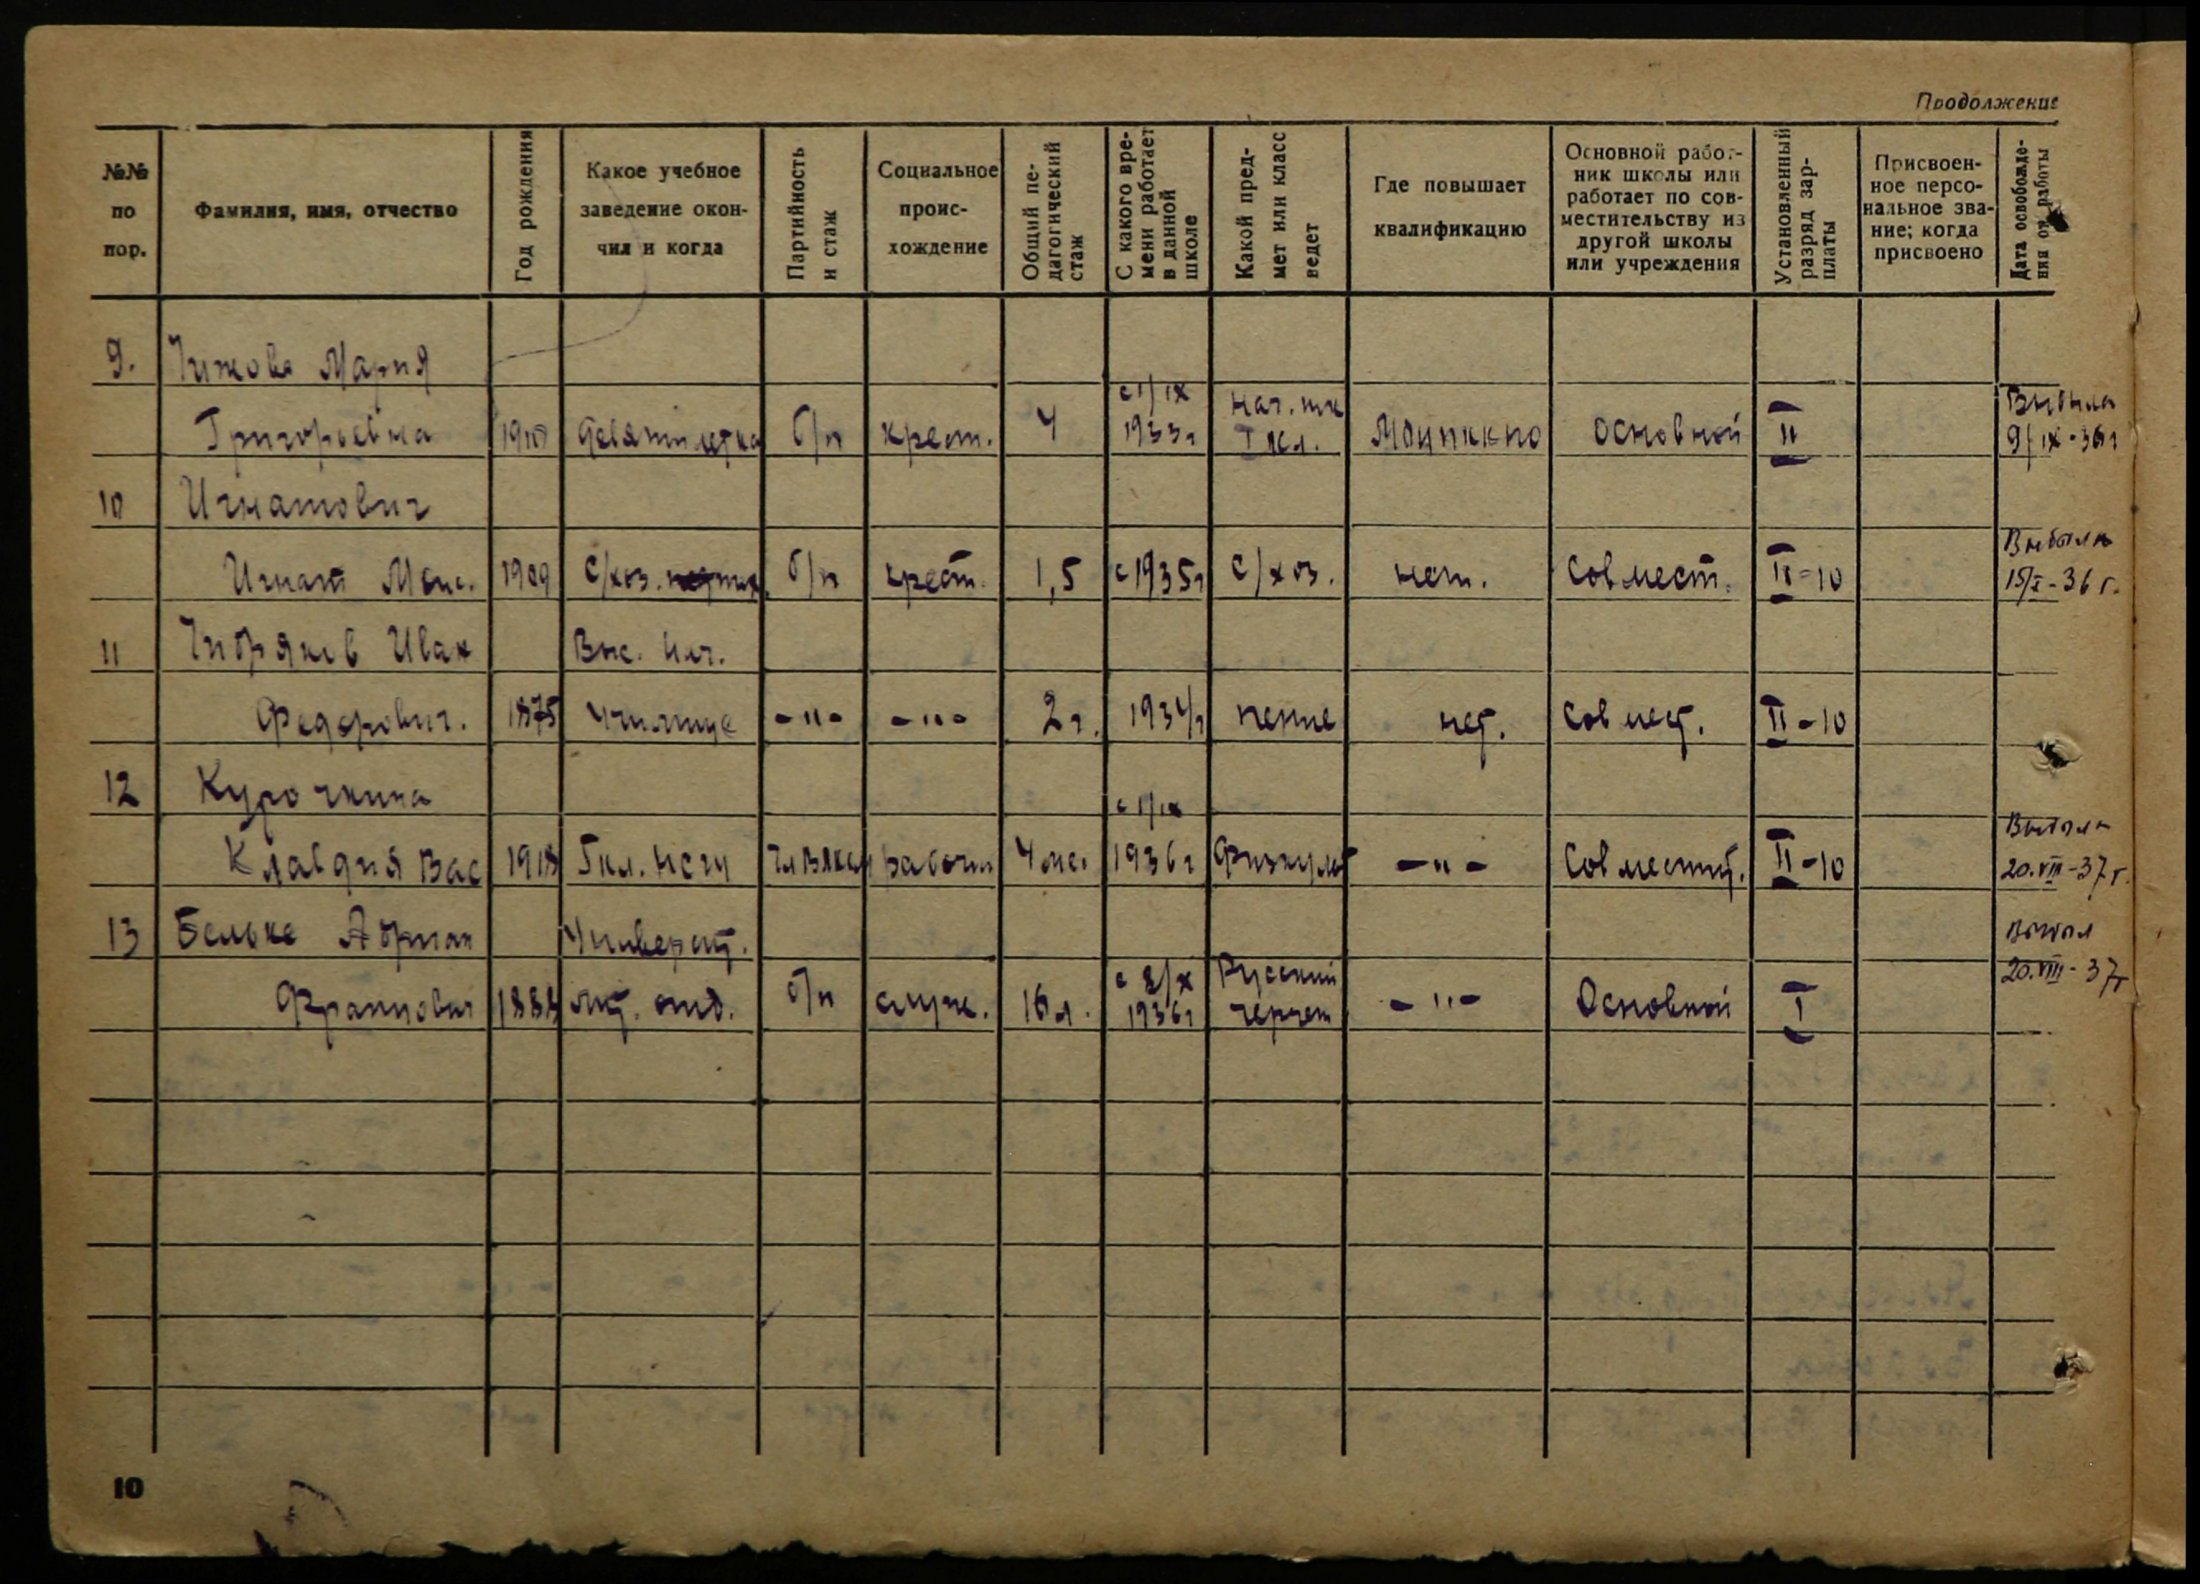 Продолжение
№№ по пор.
Фамилия, имя, отчество
Год рождения
Какое учебное заведение окончил и когда
Партийность и стаж
Социальное происхождение
Общий педагогический стаж
С какого времени работает в данной школе
Какой предмет или класс ведет
Где повышает квалификацию
Основной работник школы или работает по совместительству из другой школы или учреждения
Установленный разряд зарплаты
Присвоенное персональное звание; когда присвоено
Дата освобождения от работы
9. Чижова Мария
с 1/IX нач. шк Выбыла
Григорьевна 1910 девятилетка б/п крест. 4 1933г I кл. основной II 9/IX-36г
10 Игнатович
Выбыл
Игнат 1909 С/хоз. б/п крест. 1,5 с 1935г С/хоз. нет. Совмест. II-10 15/I-36 г.
11 Иван Выс. Нач.
Федорович. 1875 Училище -"- -"- 2г. 1934г пение нет. Совмест. II-10
12 Курочкина
с 1/IX Выбыла
Клавдия Вас 1918 7кл. НСШ рабочий 4 мес. 1936г Физкульт -"- Совместит. II-10 20.VIII-37г.
13 Бельке Адриан Университ. Выбыл
с 2/X Русский 20.VIII-37г
Францович отд. б/п служ. 16л. 1936г черчен -"- Основной I
10